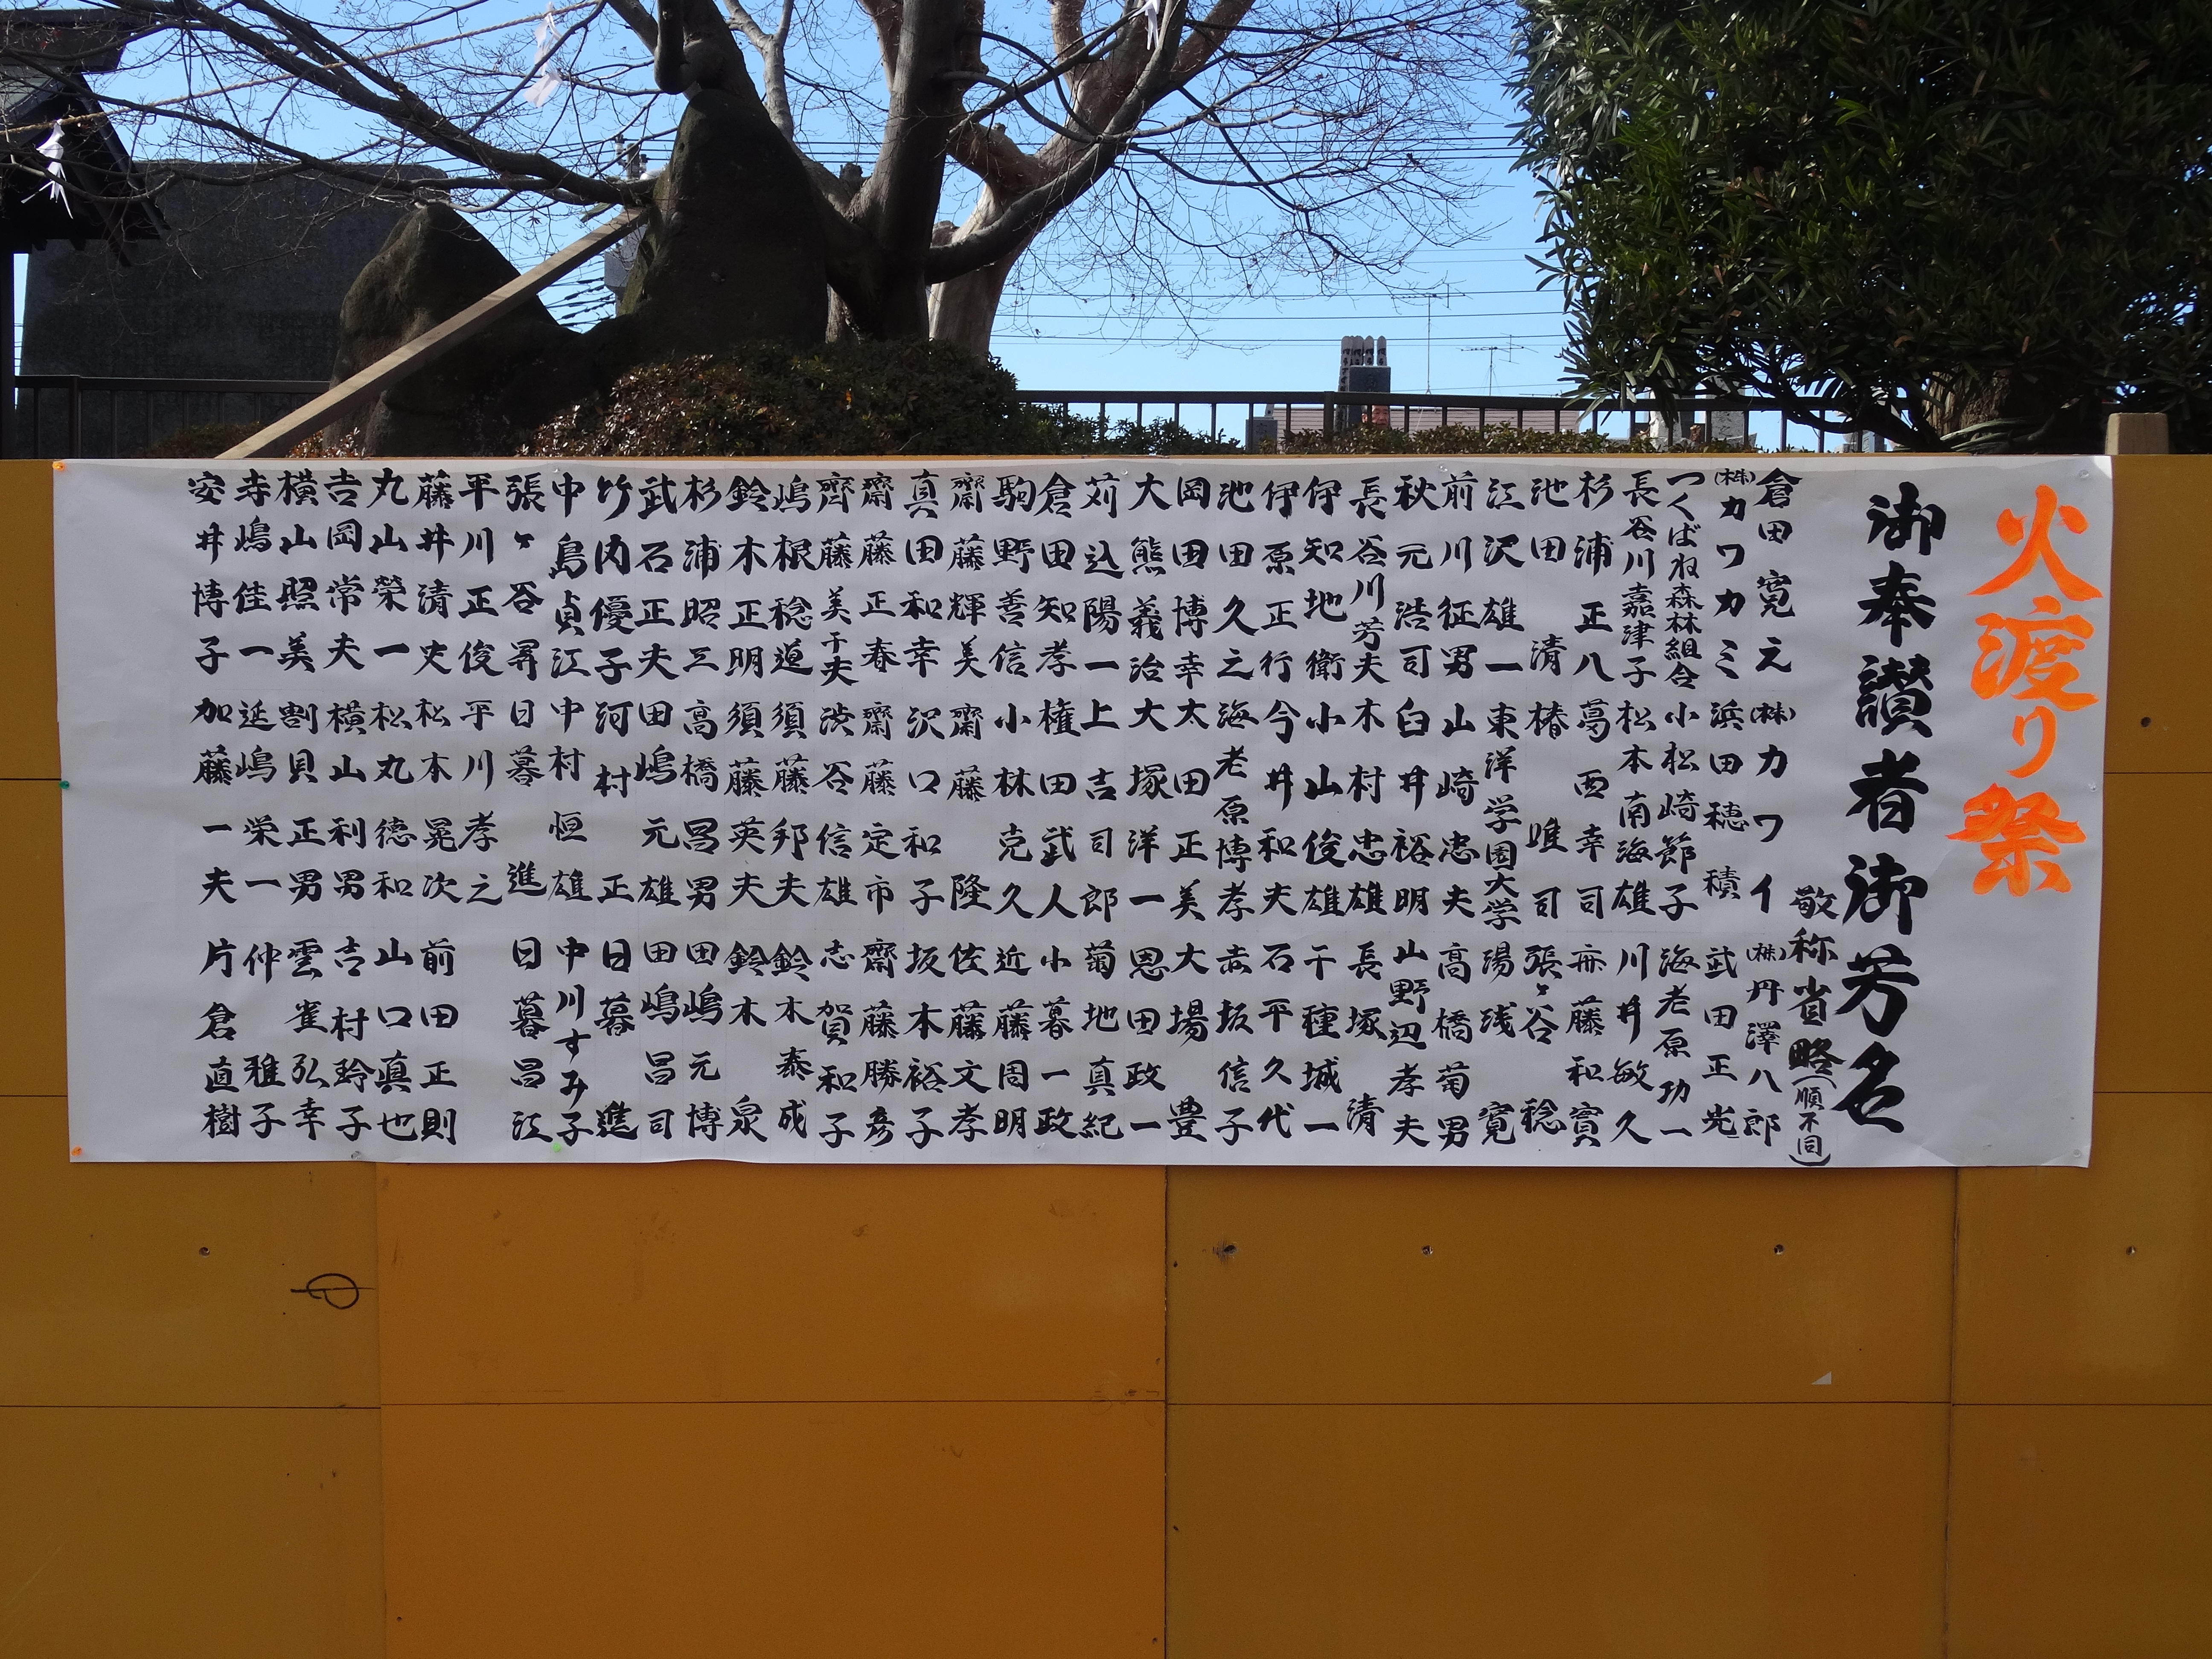 火渡り祭
御奉讃者御芳名
敬称省略(順不同)
倉田寛元 (株)カワワイ (株)丹澤八郎
(株)カワカミ 浜田穂積 武田正光
つくばね森林組合 小松崎節子 海老原功一
長谷川嘉津子 松本南海雄 川井敏久
杉浦正八 葛西幸司 斉藤和實
池田清 椿唯司 張ヶ谷稔
江沢雄一 東洋学園大学 湯浅寛
前川征男 山崎忠夫 高橋菊男
秋元浩司 臼井裕明 山野辺孝夫
長谷川芳夫 木村忠雄 長塚清
伊知地衛 小山俊雄 千種城一
伊原正行 今井和夫 石平久代
池田久之 海老原博孝 赤坂信子
岡田博幸 太田正美 大場豊
大熊義治 大塚洋一 恩田政一
苅込陽一 上吉司郎 菊地真紀
倉田知孝 権田武人 小暮一政
駒野善信 小林克久 近藤周明
齋藤輝美 齋藤隆 佐藤文孝
真田和幸 沢口和子 坂本裕子
齋藤正春 齋藤定市 齋藤勝彦
齊藤美千夫 渋谷信雄 志賀和子
嶋根稔道 須藤邦夫 鈴木泰成
鈴木正明 須藤英夫 鈴木泉
杉浦昭三 高橋昌男 田嶋元博
武石正夫 田嶋元雄 田嶋昌司
竹内優子 河村正 日暮進
中島貞江 中村恒雄 中川すみ子
張ヶ谷昇 日暮進 日暮昌江
平川正俊 平川孝之
藤井清史 松本晃次 前田正則
丸山榮一 松丸徳和 山口真也
吉岡常夫 横山利男 吉村玲子
横山照美 割貝正男 雲雀弘幸
寺嶋佳一 延嶋栄一 仲雅子
安井博子 加藤一夫 片倉直樹